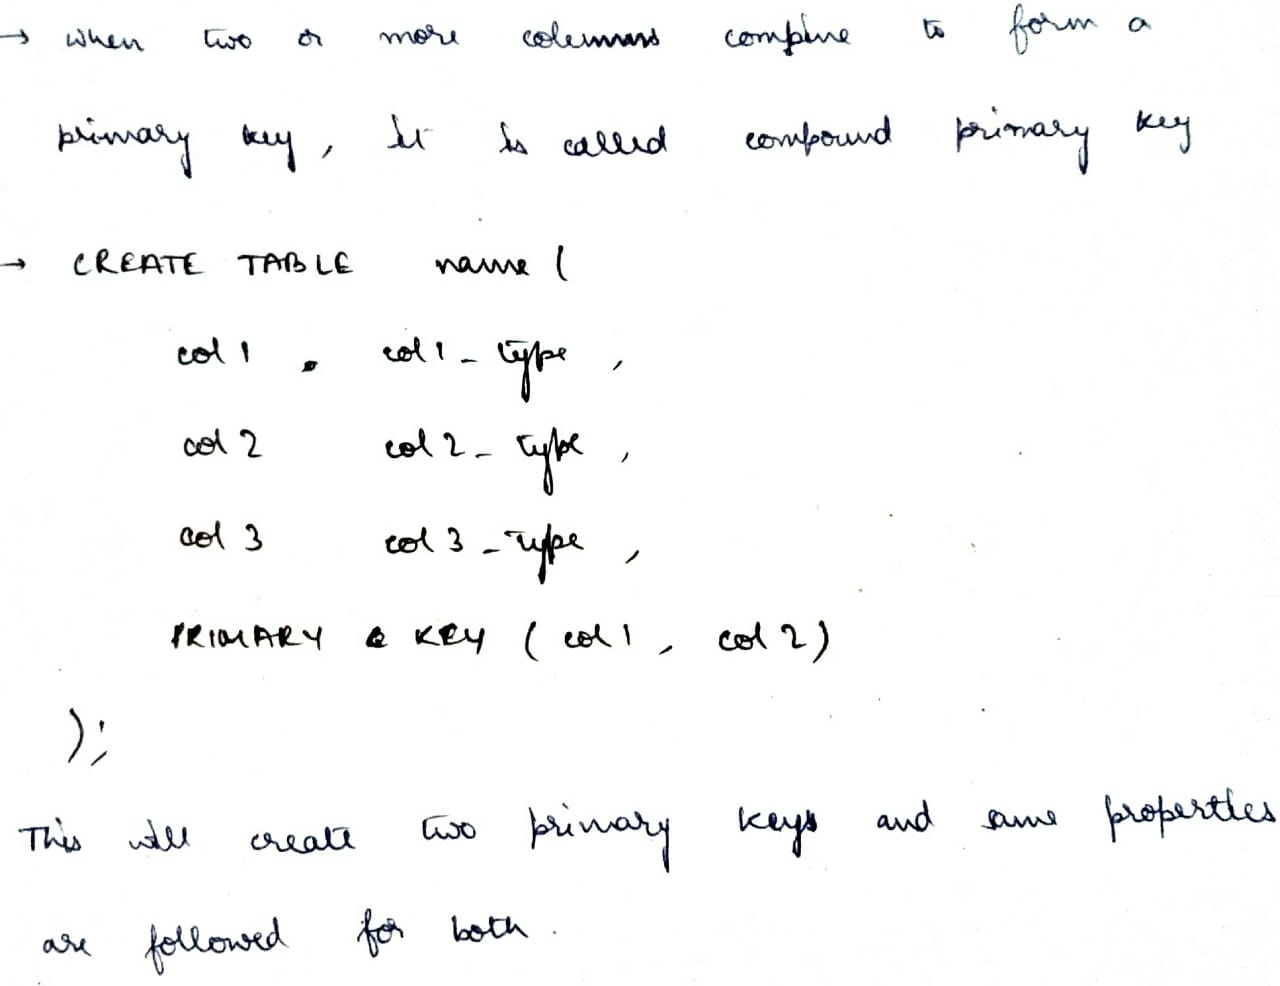 → when two or more columns combine to form a
primary key, it is called compound primary key
→ CREATE TABLE name (
col 1 col 1 - type ,
col 2 col 2 - type ,
col 3 col 3 - type ,
PRIMARY KEY ( col 1 , col 2 )
);
This will create two primary keys and same properties
are followed for both .